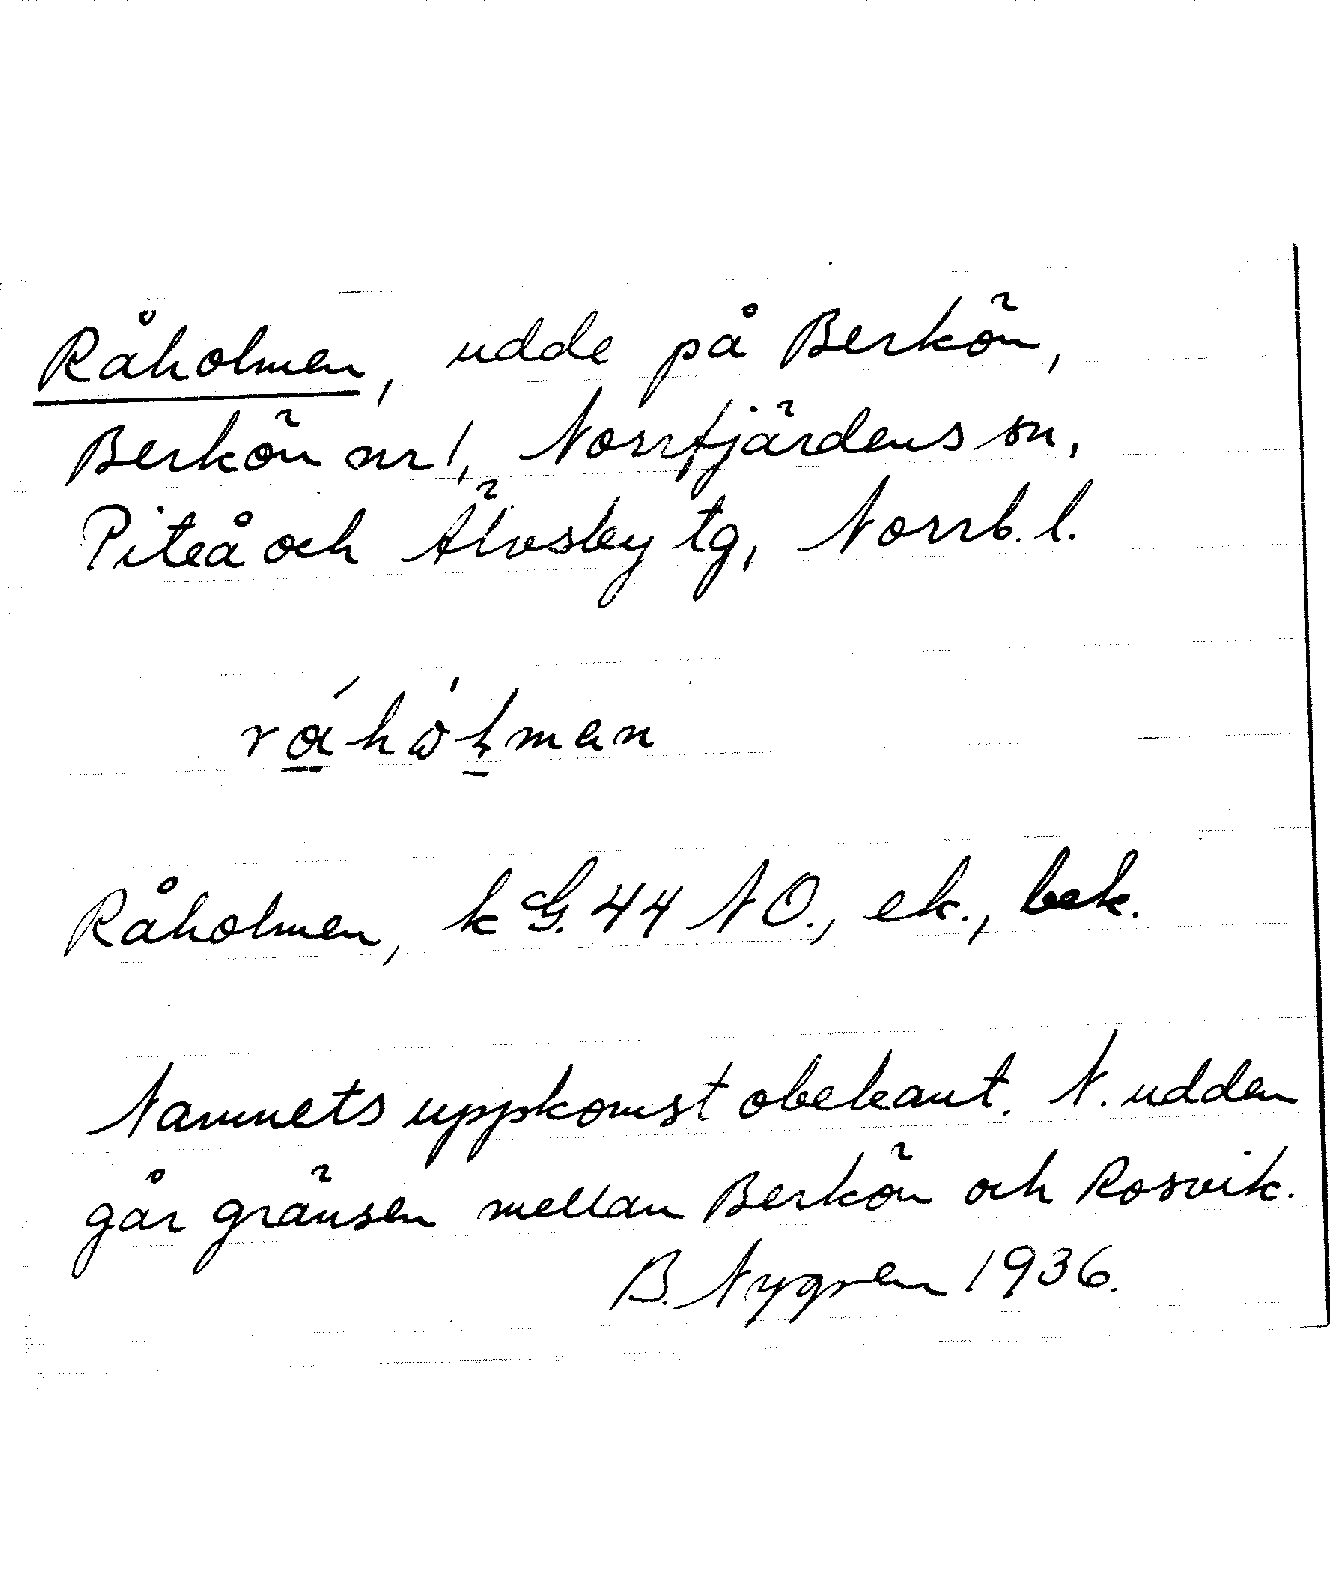 Råholmen, udde på Berkön,
Berkön nr 1, Norrfjärdens sn,
Piteå och Älvsby tg, Norrb. l.
Råholmen, k G. 44 NO., ek., bek.
Namnets uppkomst obekant. N. udden
går gränsen mellan Berkön och Rosvik.
B. Nygren 1936.